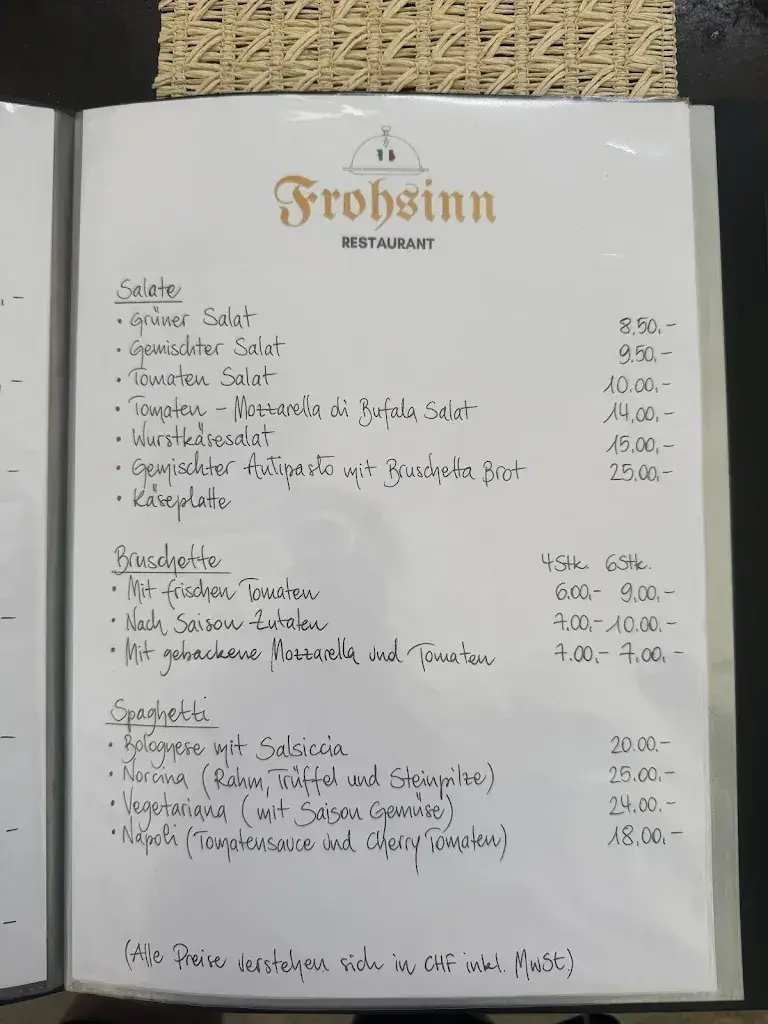 Frohsinn
RESTAURANT
Salate
• Grüner Salat 8,50.-
• Gemischter Salat 9,50.-
• Tomaten Salat 10.00,-
• Tomaten - Mozzarella di Bufala Salat 14,00,-
• Wurstkäsesalat 15,00,-
• Gemischter Antipasto mit Bruschetta Brot 25.00,-
• Käseplatte
Bruschette 4Stk. 6Stk.
• Mit frischen Tomaten 6.00,- 9,00,-
• Nach Saison Zutaten 7.00,- 10.00.-
• Mit gebackene Mozzarella und Tomaten 7.00,- 7,00,-
Spaghetti
• Bolognese mit Salsiccia 20.00.-
• Norcina (Rahm, Trüffel und Steinpilze) 25.00.-
• Vegetariana (mit Saison Gemüse) 24.00.-
• Napoli (Tomatensauce und Cherry Tomaten) 18,00,-
(Alle Preise verstehen sich in CHF inkl. MwSt.)